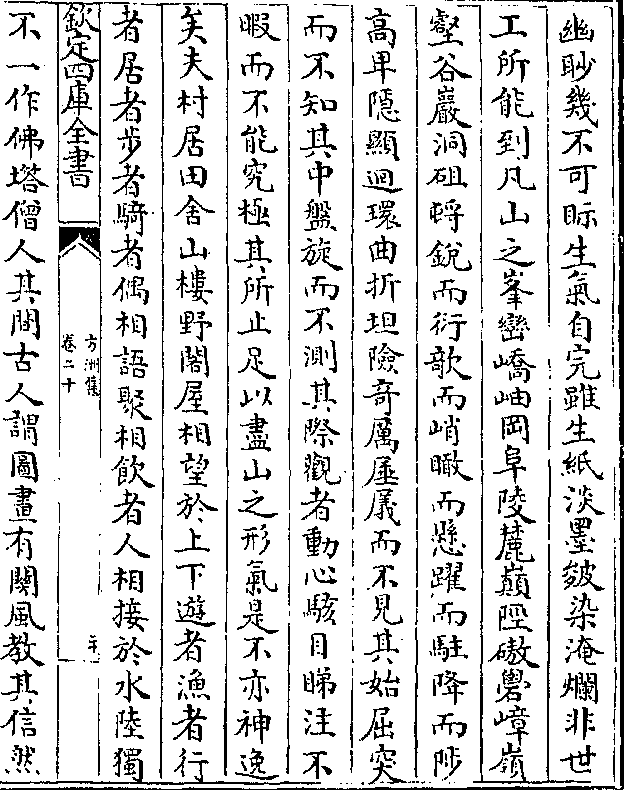 幽眇幾不可眎生氣自完雖生紙淡墨皴染淹爛非世
工所能到凡山之峯巒嶠岫岡阜陵麓巔陘磝礐嶂嶺
壑谷巖洞砠崿銳而衍欹而峭瞰而懸躍而駐降而陟
高卑隱顯迴環曲折坦險奇厲厜㕒而不見其始屈突
而不知其中盤旋而不測其際觀者動心駭目睇注不
暇而不能究極其所止足以盡山之形氣是不亦神逸
矣夫村居田舍山樓野閣屋相望於上下遊者漁者行
者居者步者騎者偶相語聚相飲者人相接於水陸獨
欽定四庫全書
方洲集
卷二十
不一作佛塔僧人其間古人謂圖畫有關風教其信然